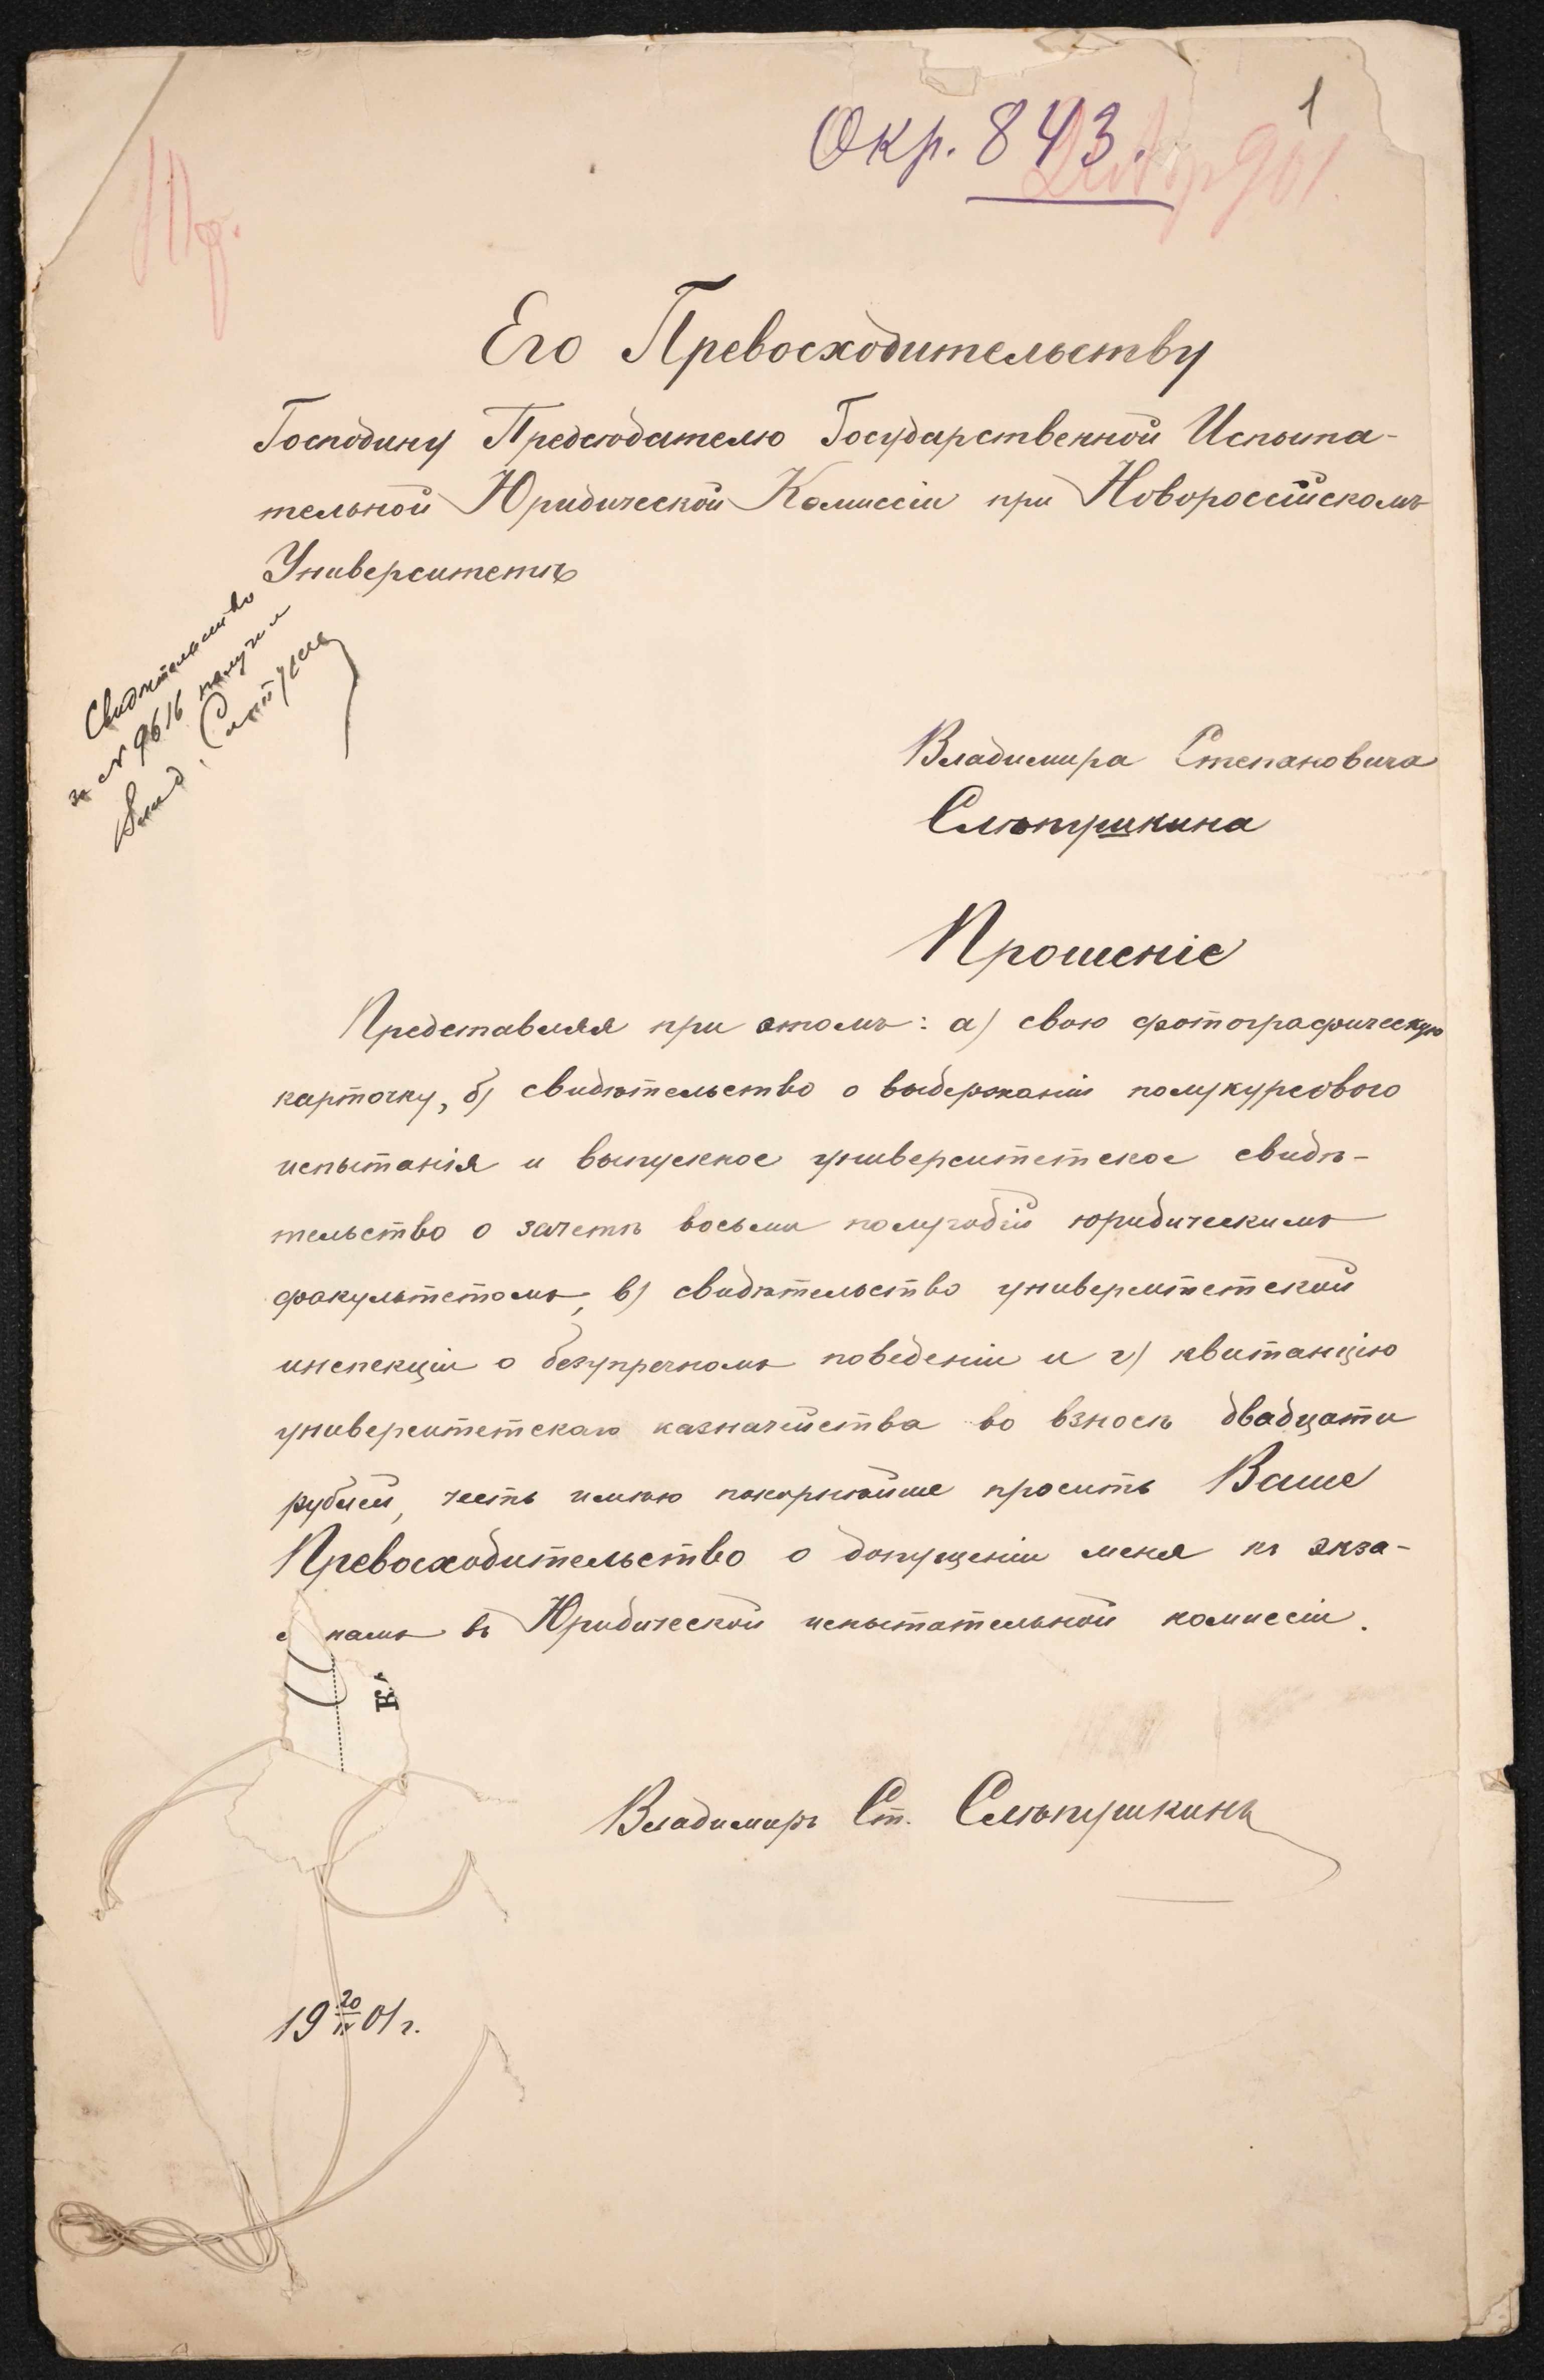 1
Окр. 843.
Его Превосходительству
Господину Предсѣдателю Государственной Испыта-
тельной Юридической Комиссіи при Новороссійскомъ
Университетѣ
Свидѣтельство
за № 9616 получил
Влад.
Владимира Степановича
Слѣпушкина
Прошеніе
Представляя при этомъ: а) свою фотографическую
карточку, б) свидѣтельство о выдержаніи полукурсового
испытанія и выпускное университетское свидѣ-
тельство о зачетѣ восьми полугодій юридическимъ
факультетомъ, в) свидѣтельство университетской
инспекціи о безупречномъ поведеніи и г) квитанцію
университетскаго казначейства во взносѣ двадцати
рублей, честь имѣю покорнѣйше просить Ваше
Превосходительство о допущеніи меня къ экза-
менамъ въ Юридической испытательной комиссіи.
Владимиръ Ст. Слѣпушкинъ
19 20/IV 01 г.